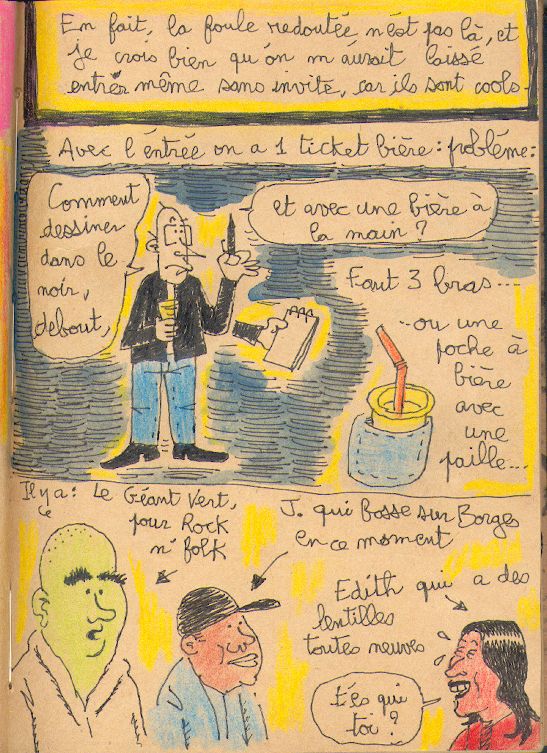 En fait, la foule redoutée n'est pas là, et
je crois bien qu'on m'aurait laissé
entrer même sans invite, car ils sont cools.
Avec l'entrée on a 1 ticket bière : problème :
Comment
dessiner
dans le
noir,
debout,
et avec une bière à
la main ?
Faut 3 bras...
..ou une
poche à
bière
avec
une
paille...
Il y a : Le Géant Vert,
pour Rock
n' Folk
J. qui bosse sur Borges
en ce moment
Edith qui a des
lentilles
toutes neuves
t'es qui
toi ?